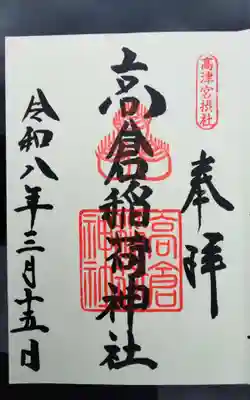 高津宮摂社
奉拝
高倉稲荷神社
令和八年三月十五日